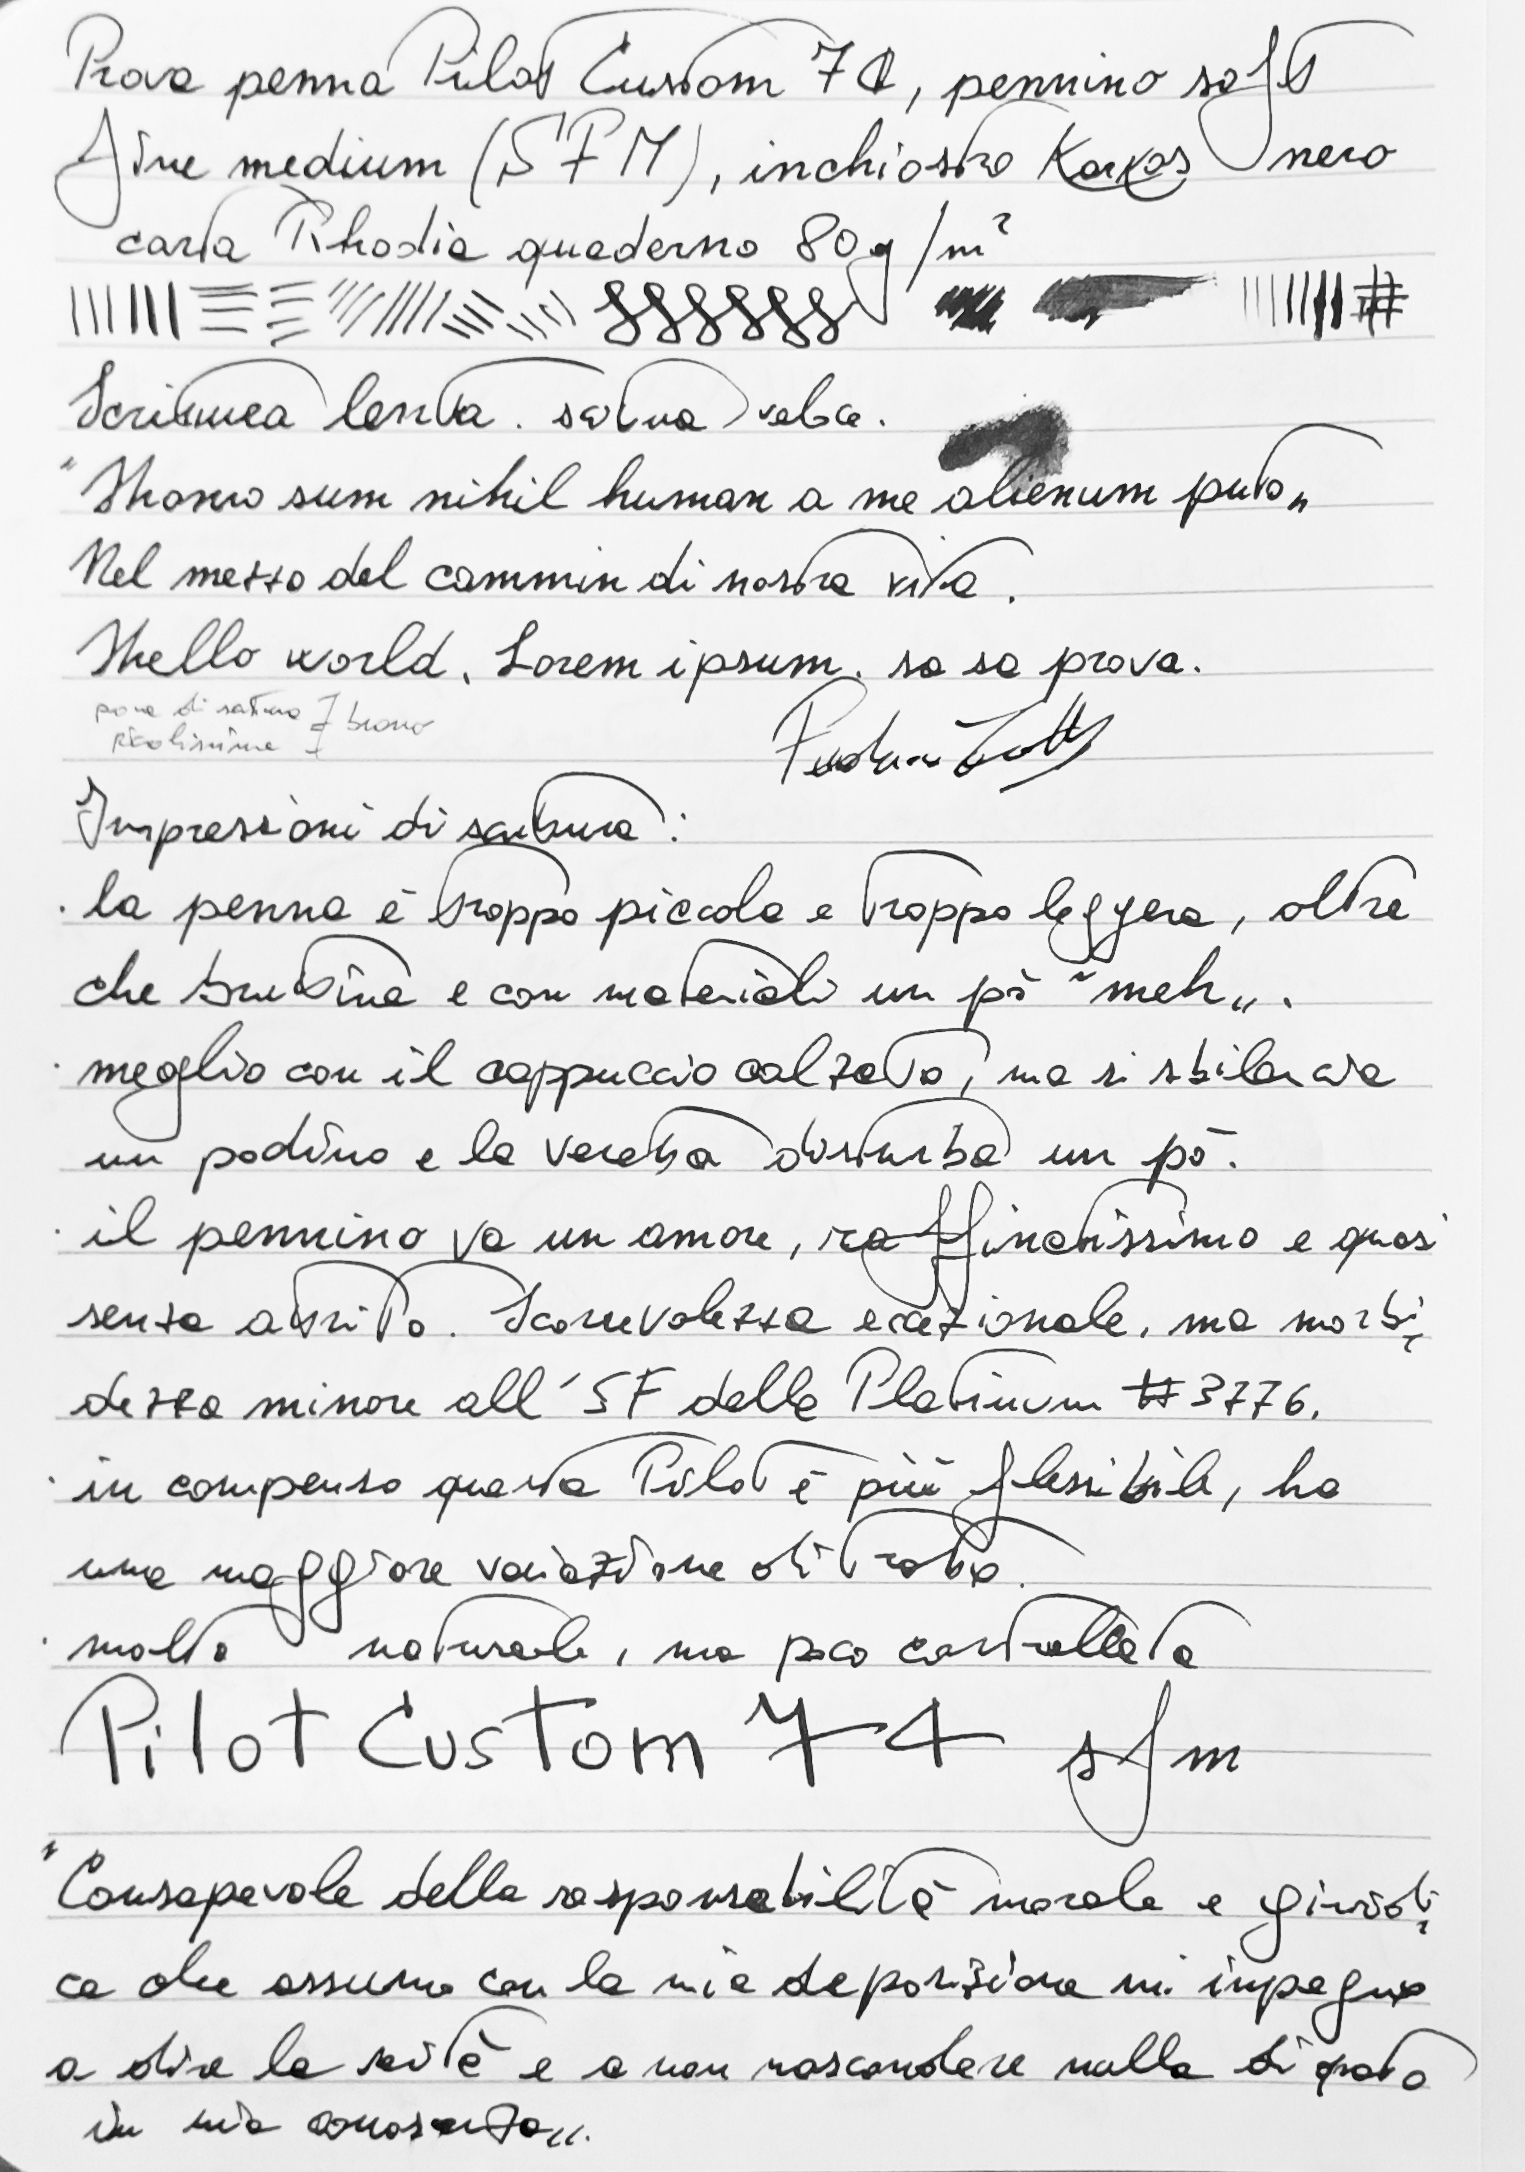 Prova penna Pilot Custom 74, pennino soft
fine medium (SFM), inchiostro Kakos nero
carta Rhodia quaderno 80g/m²
Scrittura lenta. scrittura veloce.
"Homo sum nihil human a me alienum puto"
Nel mezzo del cammin di nostra vita.
Hello world, Lorem ipsum. sa sa prova.
prova di scrittura
piccolissima } buono
Impressioni di scrittura:
· la penna è troppo piccola e troppo leggera, oltre
che bruttina e con materiali un pò "meh".
· meglio con il cappuccio calzato, ma si sbilancia
un podino e la veretta disturba un pò.
· il pennino va un amore, raffinatissimo e quasi
senza attrito. Scorrevolezza eccezionale, ma morbi-
dezza minore all'SF della Platinum #3776.
· in compenso questa Pilot è più flessibile, ha
una maggiore variazione di tratto.
· molto naturale, ma poco controllata
Pilot Custom 74 sfm
"Consapevole della responsabilità morale e giuridi-
ca che assumo con la mia deposizione mi impegno
a dire la verità e a non nascondere nulla di quato
in mia conoscenza".